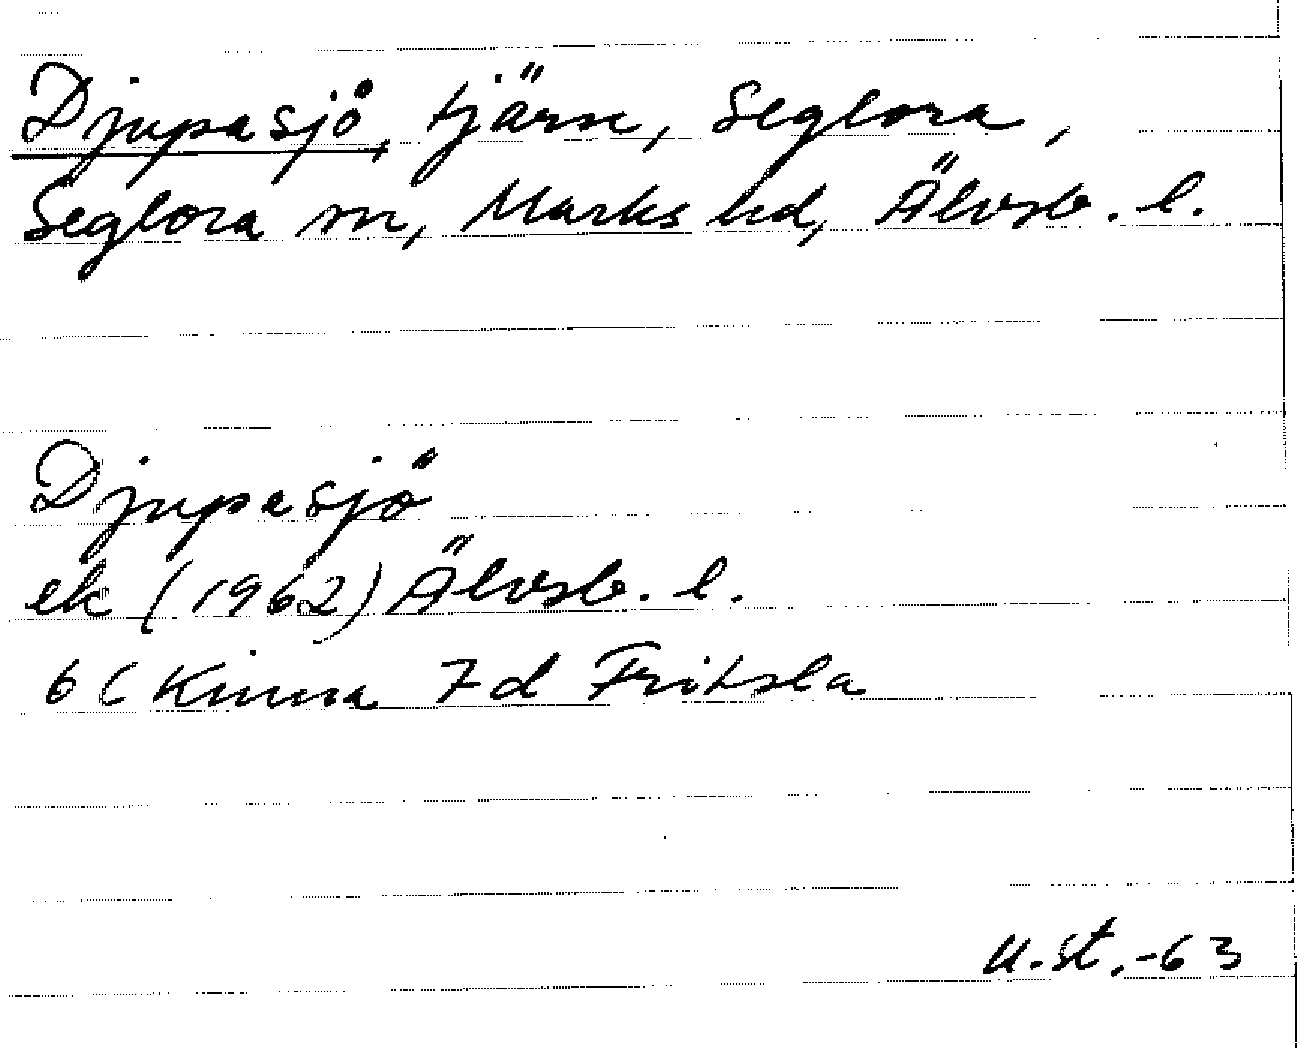 Djupasjö, tjärn, Seglora,
Seglora sn, Marks hd, Älvsb. l.
Djupasjö
ek (1962) Älvsb. l.
6 C Kinna 7 d Fritsla
U.St.-63